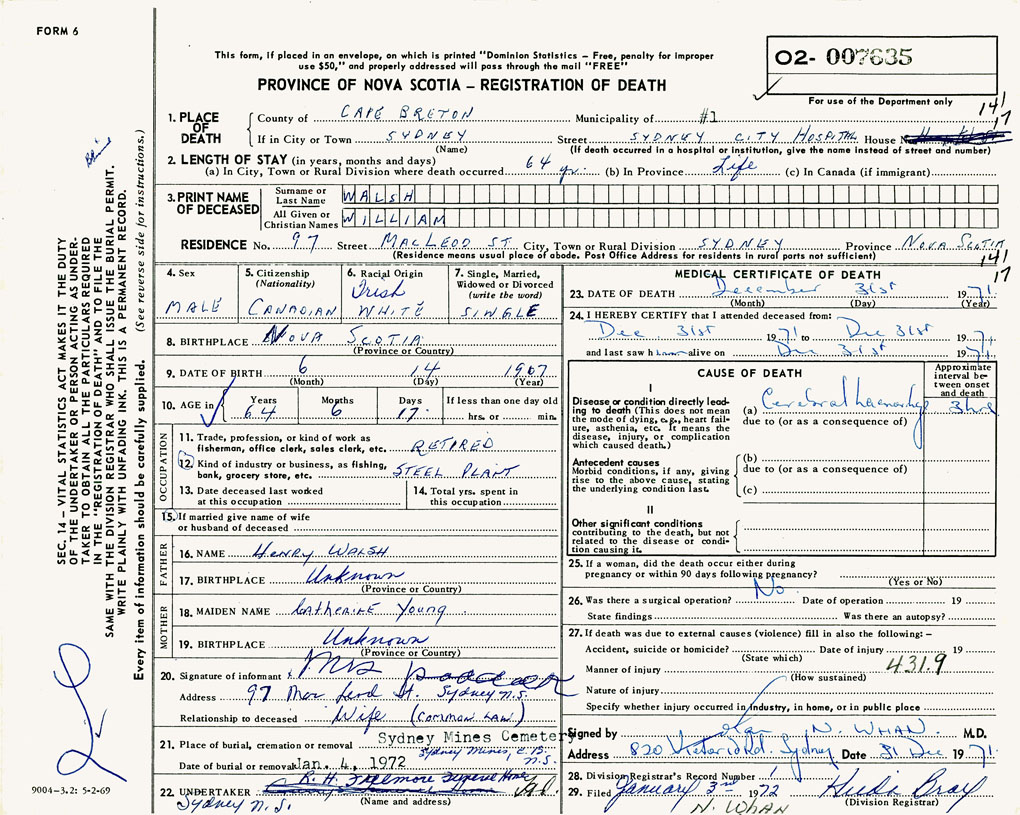 FORM 6
This form, if placed in an envelope, on which is printed "Dominion Statistics – Free, penalty for improper
use $50," and properly addressed will pass through the mail "FREE"
PROVINCE OF NOVA SCOTIA – REGISTRATION OF DEATH
02- 007635
For use of the Department only
141
17
1. PLACE OF DEATH
County of CAPE BRETON Municipality of #1
If in City or Town SYDNEY Street SYDNEY CITY HOSPITAL House
(Name) (If death occurred in a hospital or institution, give the name instead of street and number)
2. LENGTH OF STAY (in years, months and days)
(a) In City, Town or Rural Division where death occurred 64 yr. (b) In Province Life (c) In Canada (if immigrant)
3. PRINT NAME OF DECEASED
Surname or Last Name WALSH
All Given or Christian Names WILLIAM
RESIDENCE No. 97 Street MACLEOD ST. City, Town or Rural Division SYDNEY Province NOVA SCOTIA
(Residence means usual place of abode. Post Office Address for residents in rural parts not sufficient)
141
17
4. Sex
MALE
5. Citizenship
(Nationality)
CANADIAN
6. Racial Origin
Irish
WHITE
7. Single, Married,
Widowed or Divorced
(write the word)
SINGLE
8. BIRTHPLACE NOVA SCOTIA
(Province or Country)
9. DATE OF BIRTH 6 14 1907
(Month) (Day) (Year)
10. AGE in
Years Months Days If less than one day old
64 6 17 hrs. or min.
OCCUPATION
11. Trade, profession, or kind of work as
fisherman, office clerk, sales clerk, etc. RETIRED
12. Kind of industry or business, as fishing,
bank, grocery store, etc. STEEL PLANT
13. Date deceased last worked
at this occupation
14. Total yrs. spent in
this occupation
15. If married give name of wife
or husband of deceased
FATHER
16. NAME HENRY WALSH
17. BIRTHPLACE Unknown
(Province or Country)
MOTHER
18. MAIDEN NAME Catherine Young
19. BIRTHPLACE Unknown
(Province or Country)
20. Signature of informant Mrs
Address 97 Mac Leod St. Sydney N.S.
Relationship to deceased Wife (Common Law)
21. Place of burial, cremation or removal Sydney Mines Cemetery
Sydney Mines, C.B.
N.S.
Date of burial or removal Jan. 4, 1972
22. UNDERTAKER R. H. Fillmore Funeral Home
(Name and address)
Sydney N.S.
MEDICAL CERTIFICATE OF DEATH
23. DATE OF DEATH December 31st 1971
(Month) (Day) (Year)
24. I HEREBY CERTIFY that I attended deceased from:
Dec 31st 1971 to Dec 31st 1971
and last saw him alive on Dec 31st 1971
CAUSE OF DEATH
Approximate interval between onset and death
I
Disease or condition directly lead-
ing to death (This does not mean
the mode of dying, e.g., heart fail-
ure, asthenia, etc. It means the
disease, injury, or complication
which caused death.)
(a) Cerebral haemorrhage 3 hrs
due to (or as a consequence of)
Antecedent causes
Morbid conditions, if any, giving
rise to the above cause, stating
the underlying condition last.
(b)
due to (or as a consequence of)
(c)
II
Other significant conditions
contributing to the death, but not
related to the disease or condi-
tion causing it.
25. If a woman, did the death occur either during
pregnancy or within 90 days following pregnancy?
(Yes or No)
26. Was there a surgical operation? No Date of operation 19
State findings Was there an autopsy?
27. If death was due to external causes (violence) fill in also the following: –
Accident, suicide or homicide? Date of injury 19
(State which)
Manner of injury 431.9
(How sustained)
Nature of injury
Specify whether injury occurred in industry, in home, or in public place
Signed by N. WHAN M.D.
Address 820 Victoria Rd. Sydney Date 31 Dec 1971
28. Division Registrar's Record Number 1
29. Filed January 3rd 1972
(Division Registrar)
N. WHAN
SEC. 14 – VITAL STATISTICS ACT MAKES IT THE DUTY
OF THE UNDERTAKER OR PERSON ACTING AS UNDER-
TAKER TO OBTAIN ALL THE PARTICULARS REQUIRED
IN THE "REGISTRATION OF DEATH" AND TO FILE THE
SAME WITH THE DIVISION REGISTRAR WHO SHALL ISSUE THE BURIAL PERMIT.
WRITE PLAINLY WITH UNFADING INK. THIS IS A PERMANENT RECORD.
Every item of information should be carefully supplied. (See reverse side for instructions.)
9004-3.2: 5-2-69